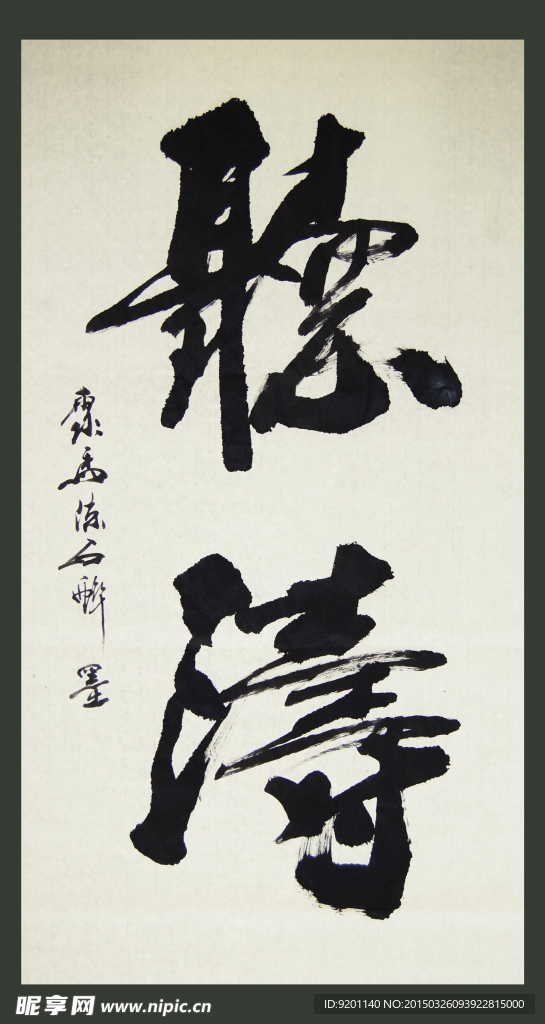 聽
濤
石
墨
昵享网 www.nipic.cn
ID:9201140 NO:20150326093922815000